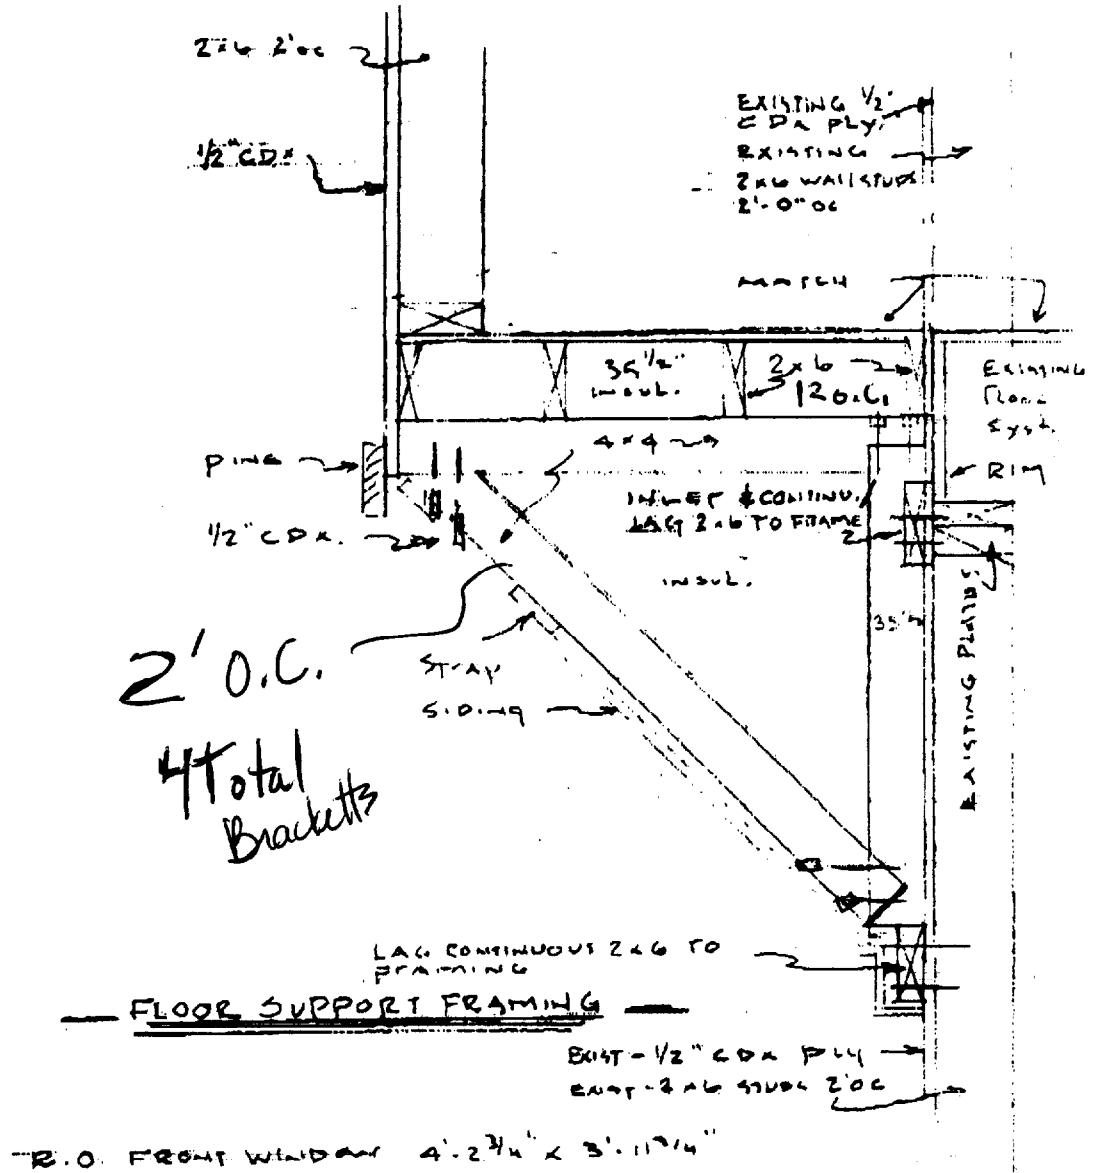 2x6 2'oc
1/2" CDX
EXISTING 1/2"
CDX PLY.
EXISTING
2x6 WALL STUDS
2'-0" OC
MATCH
35 1/2"
INSUL.
2x6
12 O.C.
EXISTING
FLOOR
SYST.
4x4
PINE
RIM
INLET & CONTINU.
LAG 2x6 TO FRAME
1/2" CDX.
2
INSUL.
2' O.C.
STRAP
SIDING
35 1/2
EXISTING PLATES
4 Total
Bracketts
LAG CONTINUOUS 2x6 TO
FRAMING
FLOOR SUPPORT FRAMING
EXIST - 1/2" CDX PLY
EXIST - 2x6 STUDS 2'OC
R.O. FRONT WINDOW 4'-2 3/4" x 3'-11 3/4"